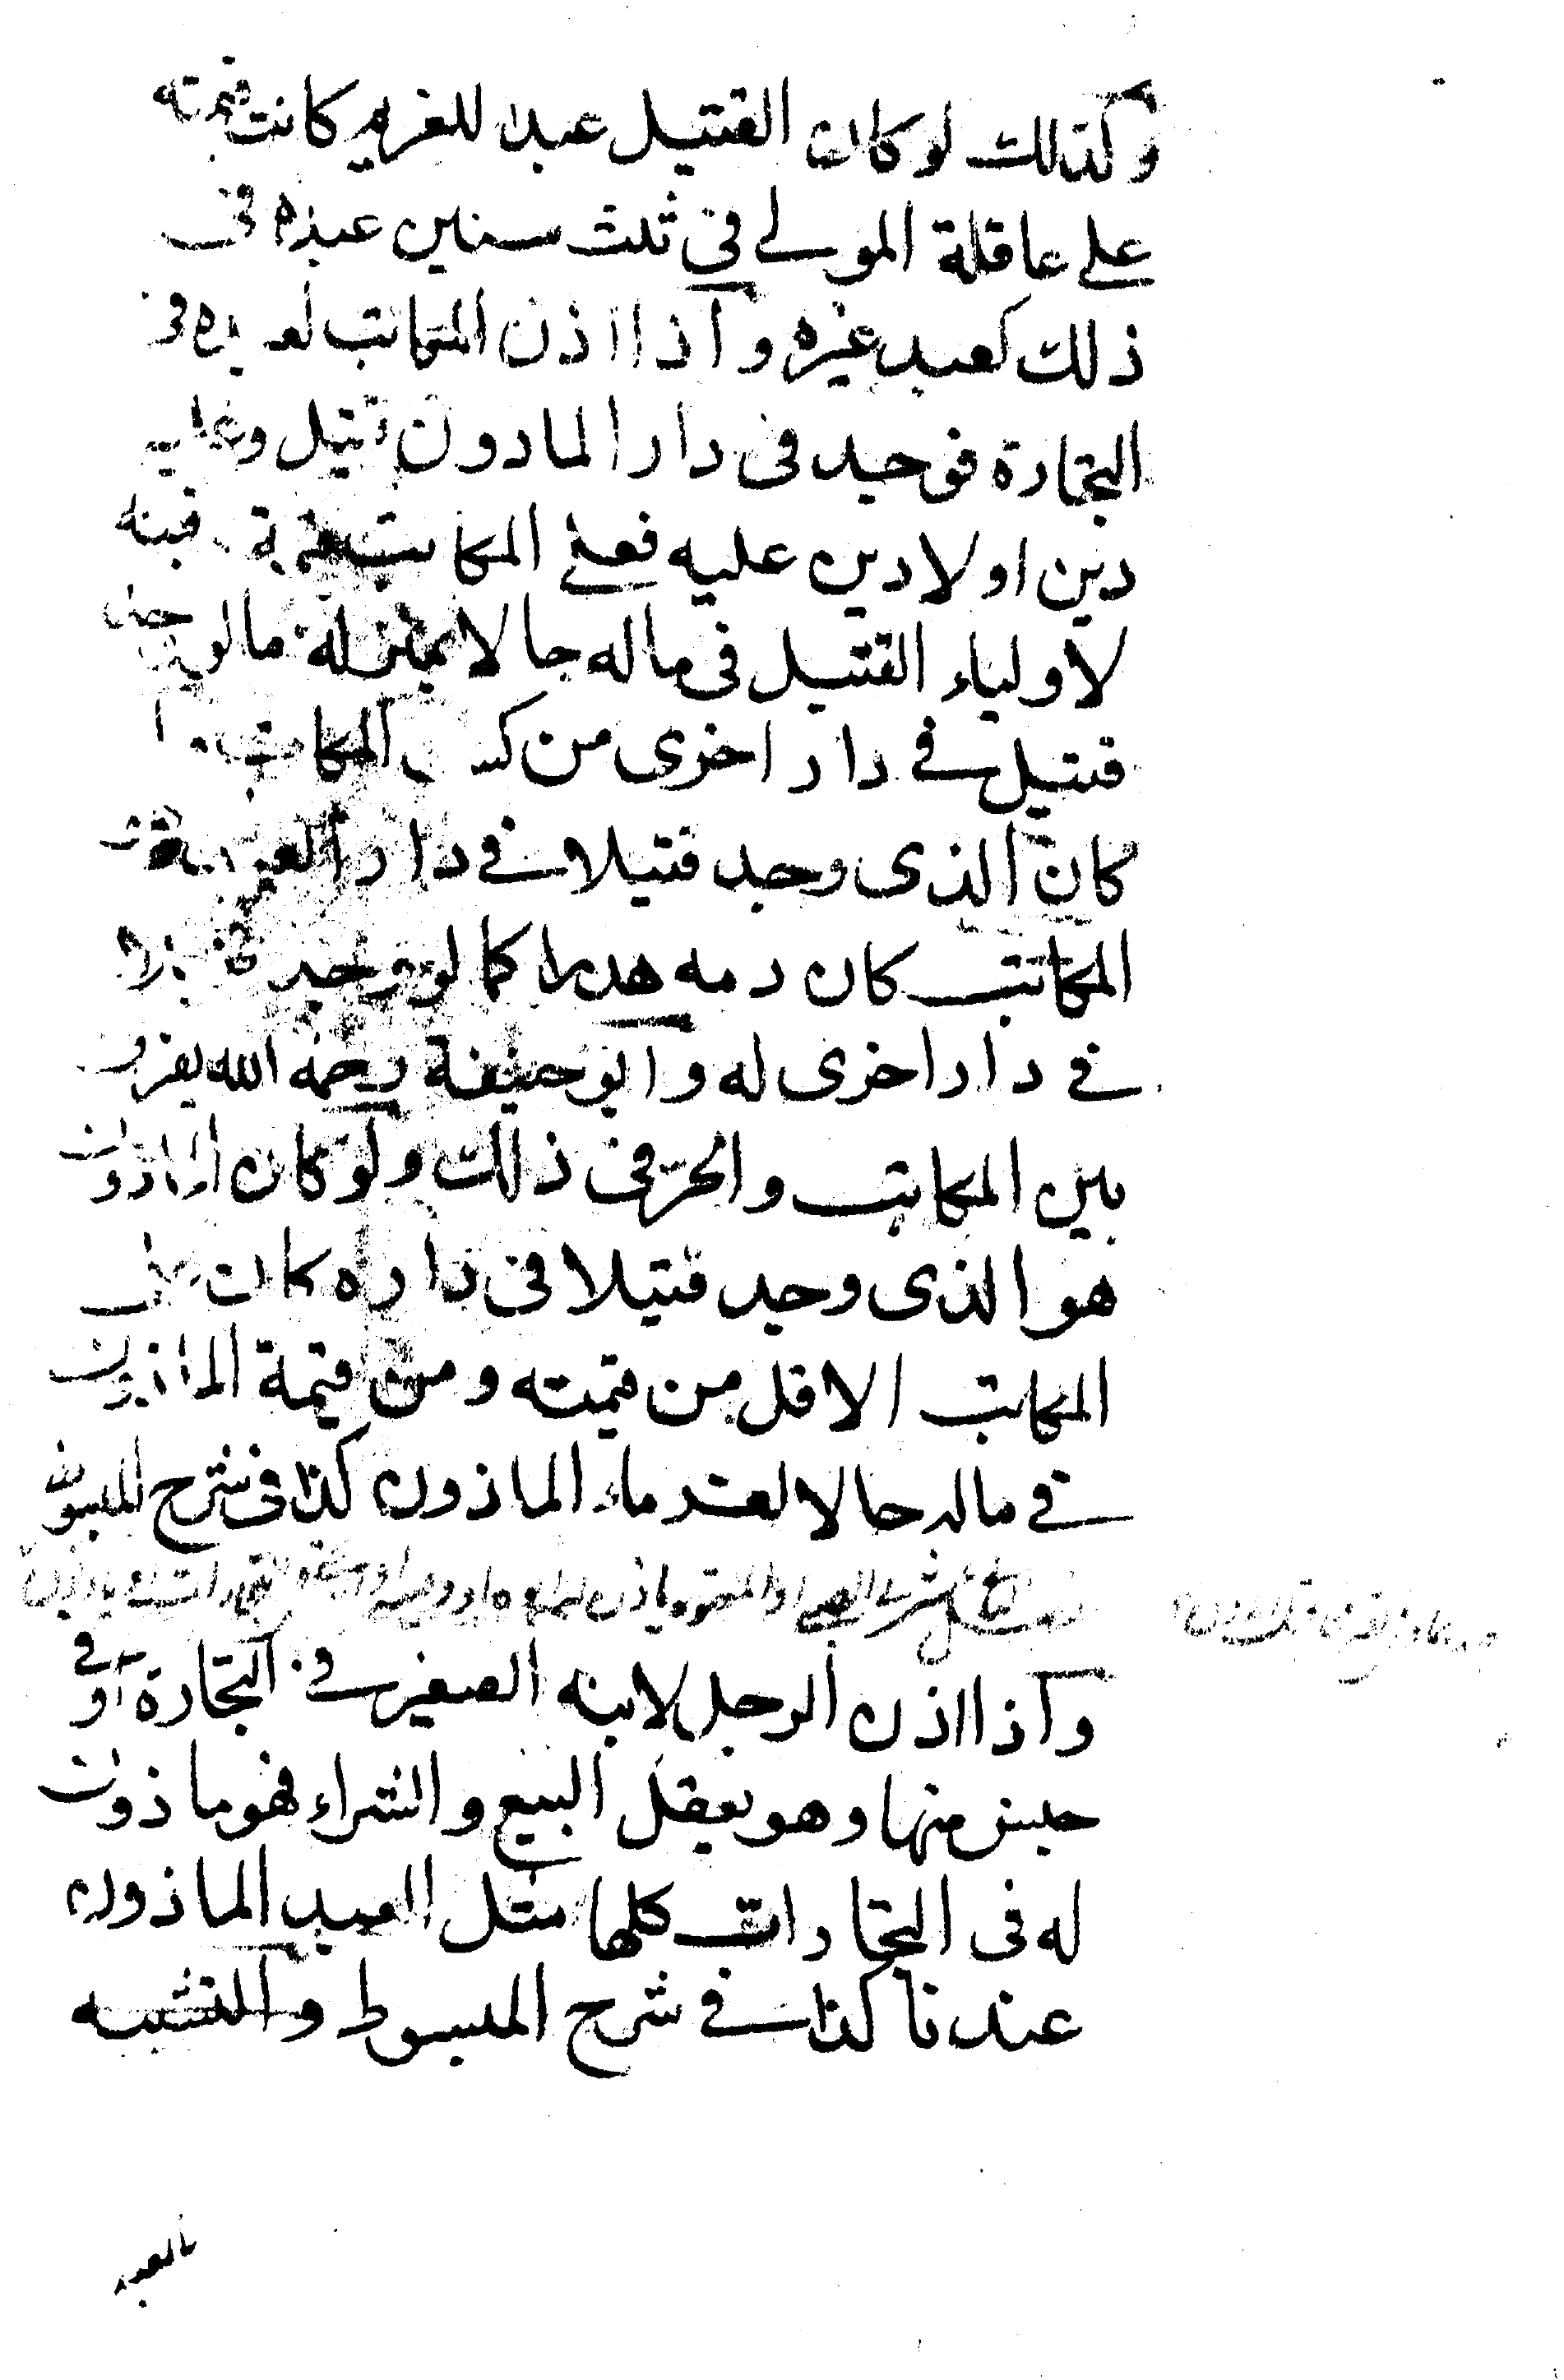 وكذلك لو كان القتيل عبدا للغريم كانت قيمته
على عاقلة المولى فى ثلث سنين عبده فى
ذلك كعبد غيره واذا اذن المكاتب لعبده فى
التجارة فوجد فى دار المادون قتيل وعليه
دين اولادين عليه فعلى المكاتب قيمة رقبته
لاولياء القتيل فى ماله حالا بمنزلة مالو
قتيل فى دار اخرى من كسب المكاتب
كان الذى وجد قتيلا فى دار العبد
المكاتب كان دمه هدرا كما لو وجد قتيلا
فى دار اخرى له وابو حنيفة رحمه الله يفرق
بين المكاتب والحرّ فى ذلك ولو كان الماذون
هو الذى وجد قتيلا فى داره كان على
المكاتب الاقل من قيمته ومن قيمة الماذون
فى ماله حالا لغرماء الماذون كذا فى شرح المبسوط
واذا اذن الرجل لابنه الصغير فى التجارة او فى
جنس منها وهو يعقل البيع والشراء فهو ماذون
له فى التجارات كلها مثل العبد الماذون
عندنا كذا فى شرح المبسوط والتشبيه
بالعبد